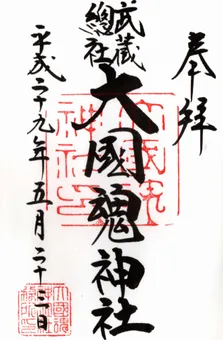 奉拝
武蔵
総社
大國魂神社
平成二十九年五月二十三日